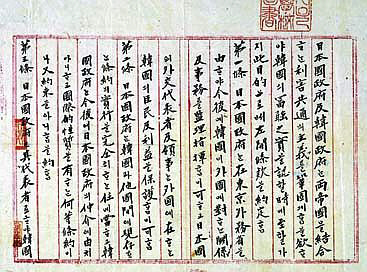 日本國政府及韓國政府는兩帝國을結合
ᄒᆞ는利害共通의主義를鞏固케ᄒᆞᆷ을欲ᄒᆞ
야韓國의富强之實을認ᄒᆞᆯ時에至ᄒᆞ기ᄭᆞ
지此目的으로써左開條款을約定ᄒᆞᆷ
第一條 日本國政府는在東京外務省을
由ᄒᆞ야今後에韓國이外國에對ᄒᆞ는關係
及事務를監理指揮ᄒᆞᆷ이可ᄒᆞ고日本國
의外交代表者及領事는外國에在ᄒᆞ는
韓國의臣民及利益을保護ᄒᆞᆷ이可ᄒᆞᆷ
第二條 日本國政府는韓國과他國間에現存ᄒᆞ
는條約의實行을完全히ᄒᆞ는任에當ᄒᆞ고韓
國政府는今後에日本國政府의仲介에由치
아니ᄒᆞ고國際的性質을有ᄒᆞ는何等條約이
나又約束을아니ᄒᆞᆷ을約ᄒᆞᆷ
第三條 日本國政府는其代表者로ᄒᆞ야韓國